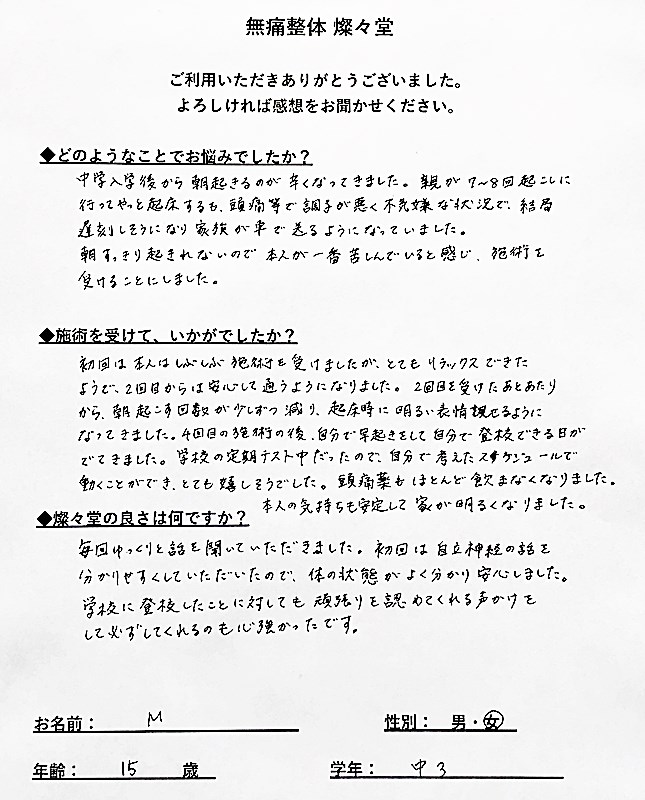 無痛整体 燦々堂
ご利用いただきありがとうございました。
よろしければ感想をお聞かせください。
◆どのようなことでお悩みでしたか？
中学入学後から朝起きるのが辛くなってきました。親が7~8回起こしに
行ってやっと起床するも、頭痛等で調子が悪く不気嫌な状況で、結局
遅刻しそうになり家族が車で送るようになっていました。
朝すっきり起きれないので本人が一番苦しんでいると感じ、施術を
受けることにしました。
◆施術を受けて、いかがでしたか？
初回は本人はしぶしぶ施術を受けましたが、とてもリラックスできた
ようで、2回目からは安心して通うようになりました。2回目を受けたあとあたり
から、朝起こす回数が少しずつ減り、起床時に明るい表情観せるように
なってきました。4回目の施術の後、自分で早起きをして自分で登校できる日が
でてきました。学校の定期テスト中だったので、自分で考えたスケジュールで
動くことができ、とても嬉しそうでした。頭痛薬もほとんど飲まなくなりました。
本人の気持ちも安定して家が明るくなりました。
◆燦々堂の良さは何ですか？
毎回ゆっくりと話を聞いていただきました。初回は自立神経の話を
分かりやすくしていただいたので、体の状態がよく分かり安心しました。
学校に登校したことに対しても頑張りを認めてくれる声かけを
して必ずしてくれるのも心強かったです。
お名前： M
性別： 男・女
年齢： 15 歳
学年： 中3